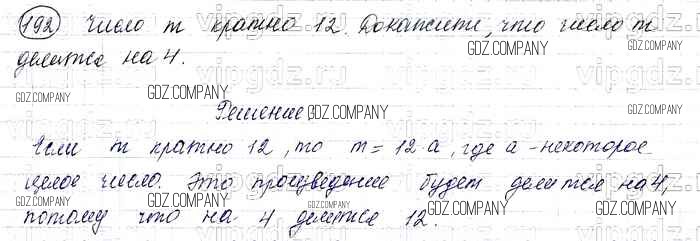 192 Число m кратно 12. Докажите, что число m
делится на 4.
GDZ.COMPANY GDZ.COMPANY
vipgdz.ru vipgdz.ru vipgdz.ru
GDZ.COMPANY GDZ.COMPANY GDZ.COMPANY
Решение:
GDZ.COMPANY GDZ.COMPANY
Если m кратно 12, то m = 12·a, где a - некоторое
GDZ.COMPANY GDZ.COMPANY
целое число. Это произведение будет делится на 4,
GDZ.COMPANY GDZ.COMPANY GDZ.COMPANY
потому что на 4 делится 12.